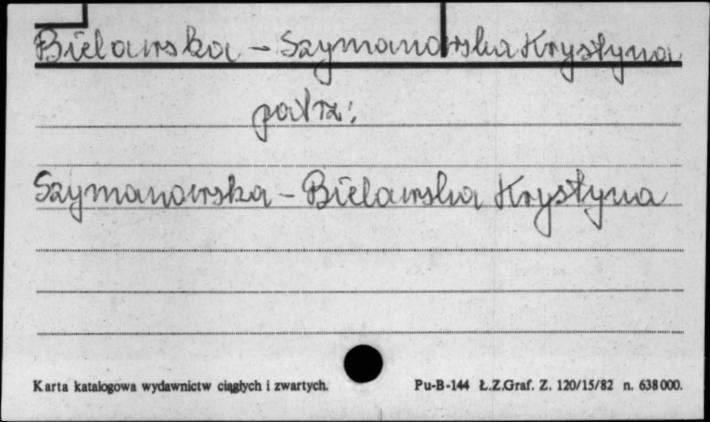 Bielawska - Szymanowska Krystyna
patrz:
Szymanowska - Bielawska Krystyna
Karta katalogowa wydawnictw ciągłych i zwartych.
Pu-B-144 Ł.Z.Graf. Z. 120/15/82 n. 638000.